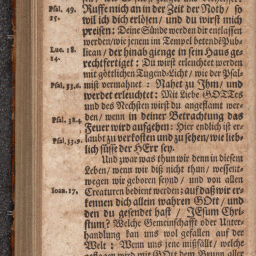 Psal. 49. Ruffe mich an in der Zeit der Noth / so
25. will ich dich erlösen / und du wirst mich
preisen: Deine Sünde werden dir entlassen
werden / wie jenem im Tempel betend
Luc. 18. lican / der hinab gienge in sein Haus ge-
14. rechtfertiget: Du wirst erleuchtet werden
mit göttlichen Tugend-Licht / wie der Psal-
Psal. 33.6. mist vermahnet: Nahet zu Ihm / und
werdet erleuchtet: Mit Liebe GOTTes
und des Nechsten wirst du angeflamt wer-
Psal. 38.4. den / wenn in deiner Betrachtung das
Feuer wird aufgehen: Hier endlich ist er-
Psal. 33.9. laubt zu verkosten und zu sehen / wie lieb-
lich süsse der HErr sey.
Und zwar was thun wir denn in diesem
Leben / wenn wir diß nicht thun / weßent-
wegen wir geboren seynd / und von allen
Ioan. 17. Creaturen bedient werden: auf daß wir er-
kennen dich allein wahren GOtt / und
den du gesendet hast / JEsum Chri-
stum? Welche Gemeinschafft oder Unter-
handlung kan uns wol gefallen auf der
Welt: Wenn uns jene mißfällt / welche
wird mit GOtt dem Brunn aller